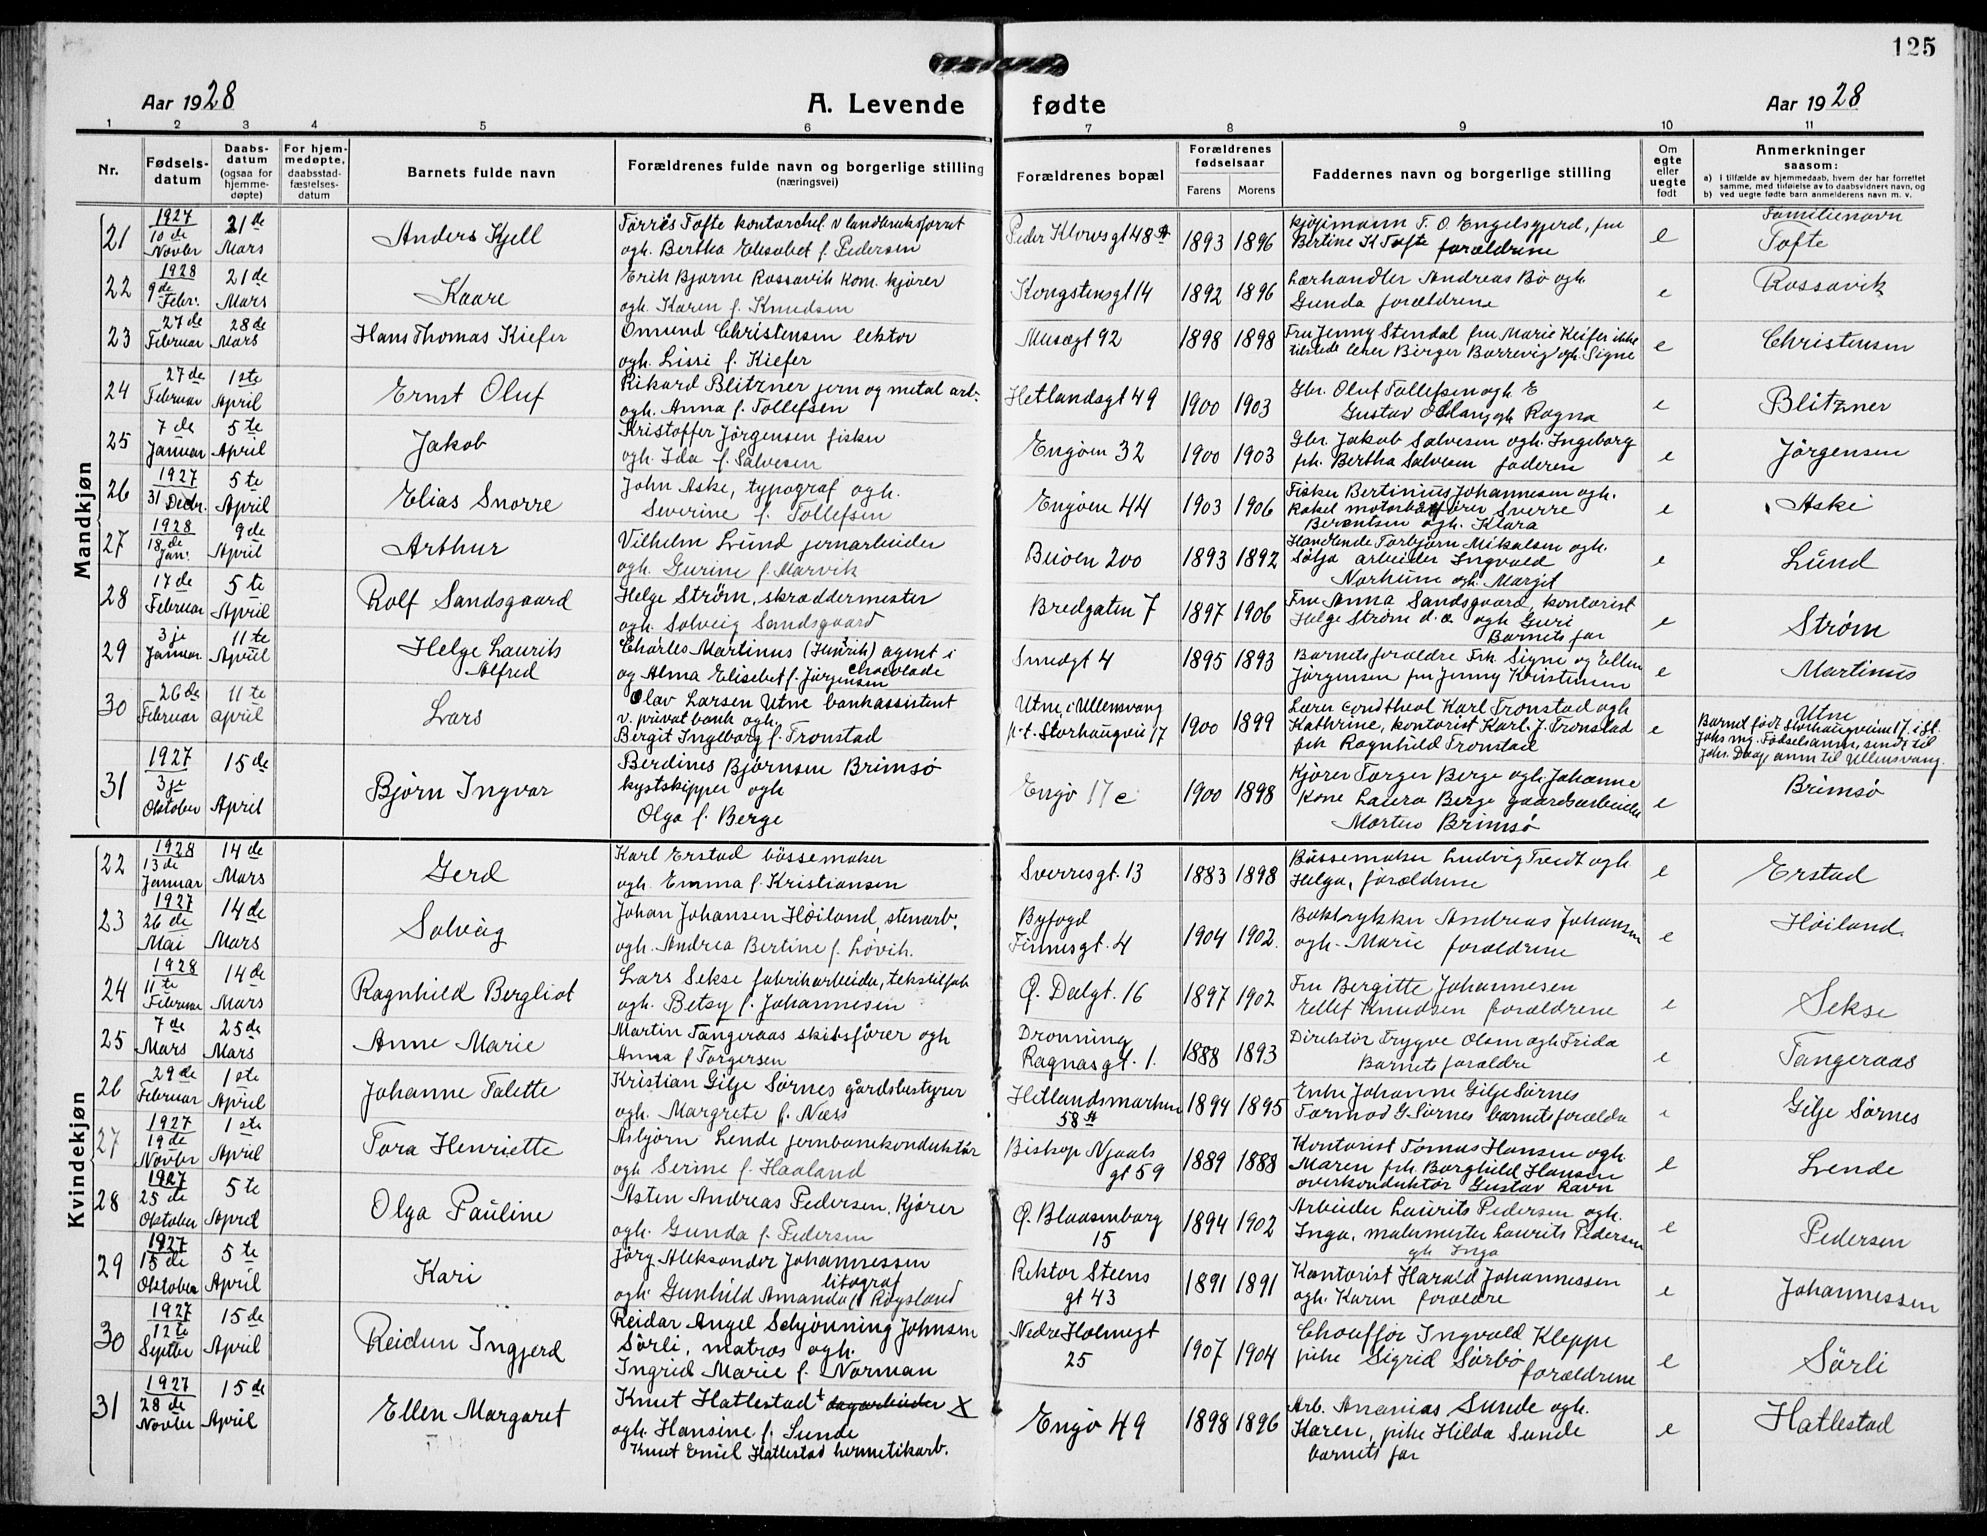 125
Aar 1928
A. Levende fødte
Aar 1928
1 2 3 4 5 6 7 8 9 10 11
Nr.
Fødsels-
datum
Daabs-
datum
(ogsaa for
hjemme-
døpte)
For hjem-
medøpte,
daabsstad-
fæstelses-
datum
Barnets fulde navn
Forældrenes fulde navn og borgerlige stilling
(næringsvei)
Forældrenes bopæl
Forældrenes
fødselsaar
Farens Morens
Faddernes navn og borgerlige stilling
Om
egte
eller
uegte
født
Anmerkninger
saasom:
a) I tilfælde av hjemmedaab, hvem der har forrettet
samme, med tilføielse av to daabsvidners navn, og
b) ved uegte født barn anmelderens navn m. v.
Mandkjøn
21 1927 10de Novbr 21de Mars
Anders Kjell
Tørres Tofte kontorchef v landbruksforret
ogh. Bertha Elisabet f. Pedersen
Peder Klowsgt 48A
1893 1896
kjøpmann T. O. Engelsgjerd, fru
Bertine H Tofte forældrene
e
Familienavn
Tofte
22 1928 9de Febr. 21de Mars
Kaare
Erik Bjarne Rossavik kom. kjører
ogh. Karen f. Knudsen
Kongstensgt 14
1892 1896
Lærhandler Andreas Bø ogh.
Gunda forældrene
e
Rossavik
23 27de Februar 28de Mars
Hans Thomas Kiefer
Omund Christensen lektor
ogh. Lissi f. Kiefer
Musægt 92
1898 1898
Fru Jenny Stendal fru Marie Keifer ikke
tilstede lener Birger Barrevig ogh. Signe
e
Christensen
24 27de Februar 1ste April
Ernst Oluf
Rikard Blitzner jern og metal arb.
ogh. Anna f. Tollefsen
Hetlandsgt 49
1900 1903
Gbr. Oluf Tollefsen ogh. E
Gustav ogh Ragna
e
Blitzner
25 7de Januar 5te April
Jakob
Kristoffer Jørgensen fisker
ogh. Ida f. Salvesen
Engøen 32
1900 1903
Gbr. Jakob Salvesen ogh. Ingeborg
frk. Bertha Salvesen faderen
e
Jørgensen
26 1927 31 Decbr. 5te April
Elias Snorre
John Aske, typograf ogh.
Severine f. Tollefsen
Engøen 44
1903 1906
Fisker Bertinius Johannesen ogh.
Rakel motorbåtfører Sverre
Berentsen ogh. Klara
e
Aske
27 1928 18de Jan. 9de April
Arthur
Vilhelm Lund jernarbeider
ogh. Gurine f. Marvik
Buøen 200
1893 1892
Handlende Torbjørn Mikalsen ogh.
Sølja arbeider Ingvald
Norheim ogh. Margit
e
Lund
28 17de Februar 5te April
Rolf Sandsgaard
Helge Strøm, skræddermester
ogh. Solveig Sandsgaard
Bredgaten 7
1897 1906
Fru Anna Sandsgaard, kontorist
Helge Strøm d.e ogh Guri
Barnets far
e
Strøm
29 3je Januar 11te April
Helge Laurits
Alfred
Charles Martinus (Henrik) agent i
chocolade
og Alma Elisebet f. Jørgensen
Smedgt 4
1895 1893
Barnets forældre Frk Signe og Ellen
Jørgensen fru Jenny Kristensen
e
Martinus
30 26de Februar 11te april
Lars
Olav Larsen Utne bankassistent
v. privat bank ogh.
Bergit Ingeborg f. Tronstad
Utne i Ullensvang
p.t. Storhaugvei 17
1900 1899
Lærer cand theol Karl Tronstad ogh
Kathrine, kontorist Karl J. Tronstad
frk Ragnhild Tronstad
e
Utne
Barnet født Storhaugveien 17 i St.
Johs mg. Fødselsanm. sendt til
Johs. Daap anm til Ullensvang.
31 1927 3je Oktober 15de April
Bjørn Ingvar
Berdines Bjørnsen Brimsø
kystskipper ogh
Olga f. Berge
Engø 17c
1900 1898
Kjører Torger Berge ogh. Johanne
Kone Laura Berge gaardsarbeider
Martin Brimsø
e
Brimsø
Kvindekjøn
22 1928 13de Januar 14de Mars
Gerd
Karl Erstad bøssemaker
ogh. Emma f. Kristiansen
Sverresgt. 13
1883 1898
Bøssemaker Ludvig Tredt ogh
Helga, forældrene
e
Erstad
23 1927 26de Mai 14de Mars
Solveig
Johan Johansen Høiland, stenarb.
ogh. Andrea Bertine f. Løvik.
Byfogd
Finnesgt. 4
1904 1902.
Boktrykker Andreas Johansen
ogh. Marie forældrene
e
Høiland.
24 1928 11te Februar 14de Mars
Ragnhild Bergliot
Lars Sekse fabrikarbeider, tekstilfab
ogh. Betsy f. Johannesen
Ø. Dalgt. 16
1897 1902
Fru Bergitte Johannesen
Ellef Knudsen forældrene
e
Sekse
25 7de Mars 25de Mars
Anne Marie
Martin Tangeraas skibsfører ogh
Anna f Torgersen
Dronning
Ragnasgt. 1.
1888 1893
Direktør Trygve Olsen ogh Frida
Barnets forældre
e
Tangeraas
26 29de Februar 1ste April
Johanne Talette
Kristian Gilje Sørnes gårdsbestyrer
ogh. Margrete f. Næss
Hetlandsmarken
58A
1894 1895
Enke Johanne Gilje Sørnes
Tormod G Sørnes barnets foreldre
e
Gilje Sørnes
27 1927 19de Novbr 1ste April
Tora Henriette
Asbjørn Lende jernbanekonduktør
ogh Serine f. Haaland
Bishop Njaals
gt 59
1889 1888
Kontorist Tomas Hansen ogh.
Maren frk. Borghild Hansen
overkonduktør Gustav Ravn
e
Lende
28 1927 25de Oktober 5te April
Olga Pauline
Asten Andreas Pedersen, Kjører
ogh. Gunda f. Pedersen
Ø. Blaasenborg
15
1894 1902
Arbeider Laurits Pedersen ogh.
Inga, malermester Laurits Pedersen
gh Inga
e
Pedersen
29 1927 15de Oktober 5te April
Kari
Jörg Aleksander Johannessen
litograf
ogh. Gunhild Amanda f. Røysland
Rektor Steens
gt 43
1891 1891
Kontorist Harald Johannessen
ogh. Karen forældre
e
Johannessen
30 1927 12te Septbr 15de April
Reidun Ingjerd
Reidar Angel Schjønning Johnsen
Sörli, matros ogh.
Ingrid Marie f. Norman
Nedre Holmegt
25
1907 1904
Chouffør Ingvald Kleppe
pike Sigrid Sørbø
forældrene
e
Sörli
31 1927 28de Novbr 15de April
Ellen Margaret
Knut Hatlestad dagarbeider X
ogh. Hansine f. Sunde
Knut Emil Hatlestad hermetikarb.
Engø 49
1898 1896
Arb. Ananias Sunde ogh.
Karen, pike Hilda Sunde
barnets far
e
Hatlestad